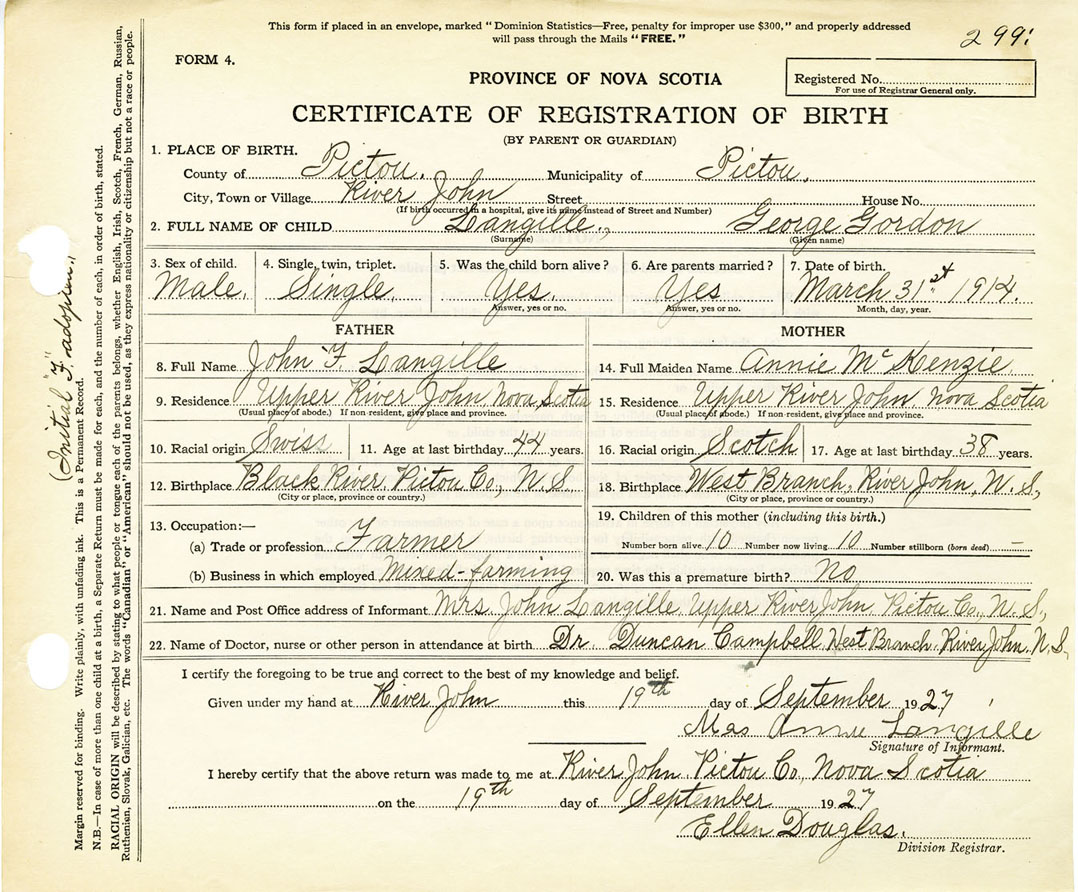 This form if placed in an envelope, marked "Dominion Statistics—Free, penalty for improper use $300," and properly addressed
will pass through the Mails "FREE."
299
FORM 4.
PROVINCE OF NOVA SCOTIA
Registered No.
For use of Registrar General only.
CERTIFICATE OF REGISTRATION OF BIRTH
(BY PARENT OR GUARDIAN)
1. PLACE OF BIRTH.
County of Pictou. Municipality of Pictou.
City, Town or Village River John Street House No.
(If birth occurred in a hospital, give its name instead of Street and Number)
2. FULL NAME OF CHILD Langille, George Gordon
(Surname) (Given name)
3. Sex of child. 4. Single, twin, triplet. 5. Was the child born alive? 6. Are parents married? 7. Date of birth.
Male. Single. Yes. Yes March 31st 1914.
Answer, yes or no. Answer, yes or no. Month, day, year.
FATHER MOTHER
8. Full Name John "F." Langille 14. Full Maiden Name Annie McKenzie
9. Residence Upper River John, Nova Scotia 15. Residence Upper River John, Nova Scotia
(Usual place of abode.) If non-resident, give place and province. (Usual place of abode.) If non-resident, give place and province.
10. Racial origin Swiss 11. Age at last birthday 44 years. 16. Racial origin Scotch 17. Age at last birthday 38 years.
12. Birthplace Black River, Pictou Co., N.S. 18. Birthplace West Branch, River John, N.S.,
(City or place, province or country.) (City or place, province or country.)
13. Occupation:— 19. Children of this mother (including this birth.)
(a) Trade or profession Farmer Number born alive 10 Number now living 10 Number stillborn (born dead) —
(b) Business in which employed Mixed-farming 20. Was this a premature birth? No
21. Name and Post Office address of Informant Mrs. John Langille, Upper River John, Pictou Co., N.S.,
22. Name of Doctor, nurse or other person in attendance at birth Dr. Duncan Campbell, West Branch, River John, N.S.
I certify the foregoing to be true and correct to the best of my knowledge and belief.
Given under my hand at River John this 19th day of September 1927
Mrs Annie Langille
Signature of Informant.
I hereby certify that the above return was made to me at River John, Pictou Co., Nova Scotia
on the 19th day of September 1927
Ellen Douglas.
Division Registrar.
(Initial "F." adopted.)
Margin reserved for binding. Write plainly, with unfading ink. This is a Permanent Record.
N.B.—In case of more than one child at a birth, a Separate Return must be made for each, and the number of each, in order of birth, stated.
RACIAL ORIGIN will be described by stating to what people or tongue each of the parents belongs, whether English, Irish, Scotch, French, German, Russian,
Ruthenian, Slovak, Galician, etc. The words "Canadian" or "American" should not be used, as they express nationality or citizenship but not a race or people.